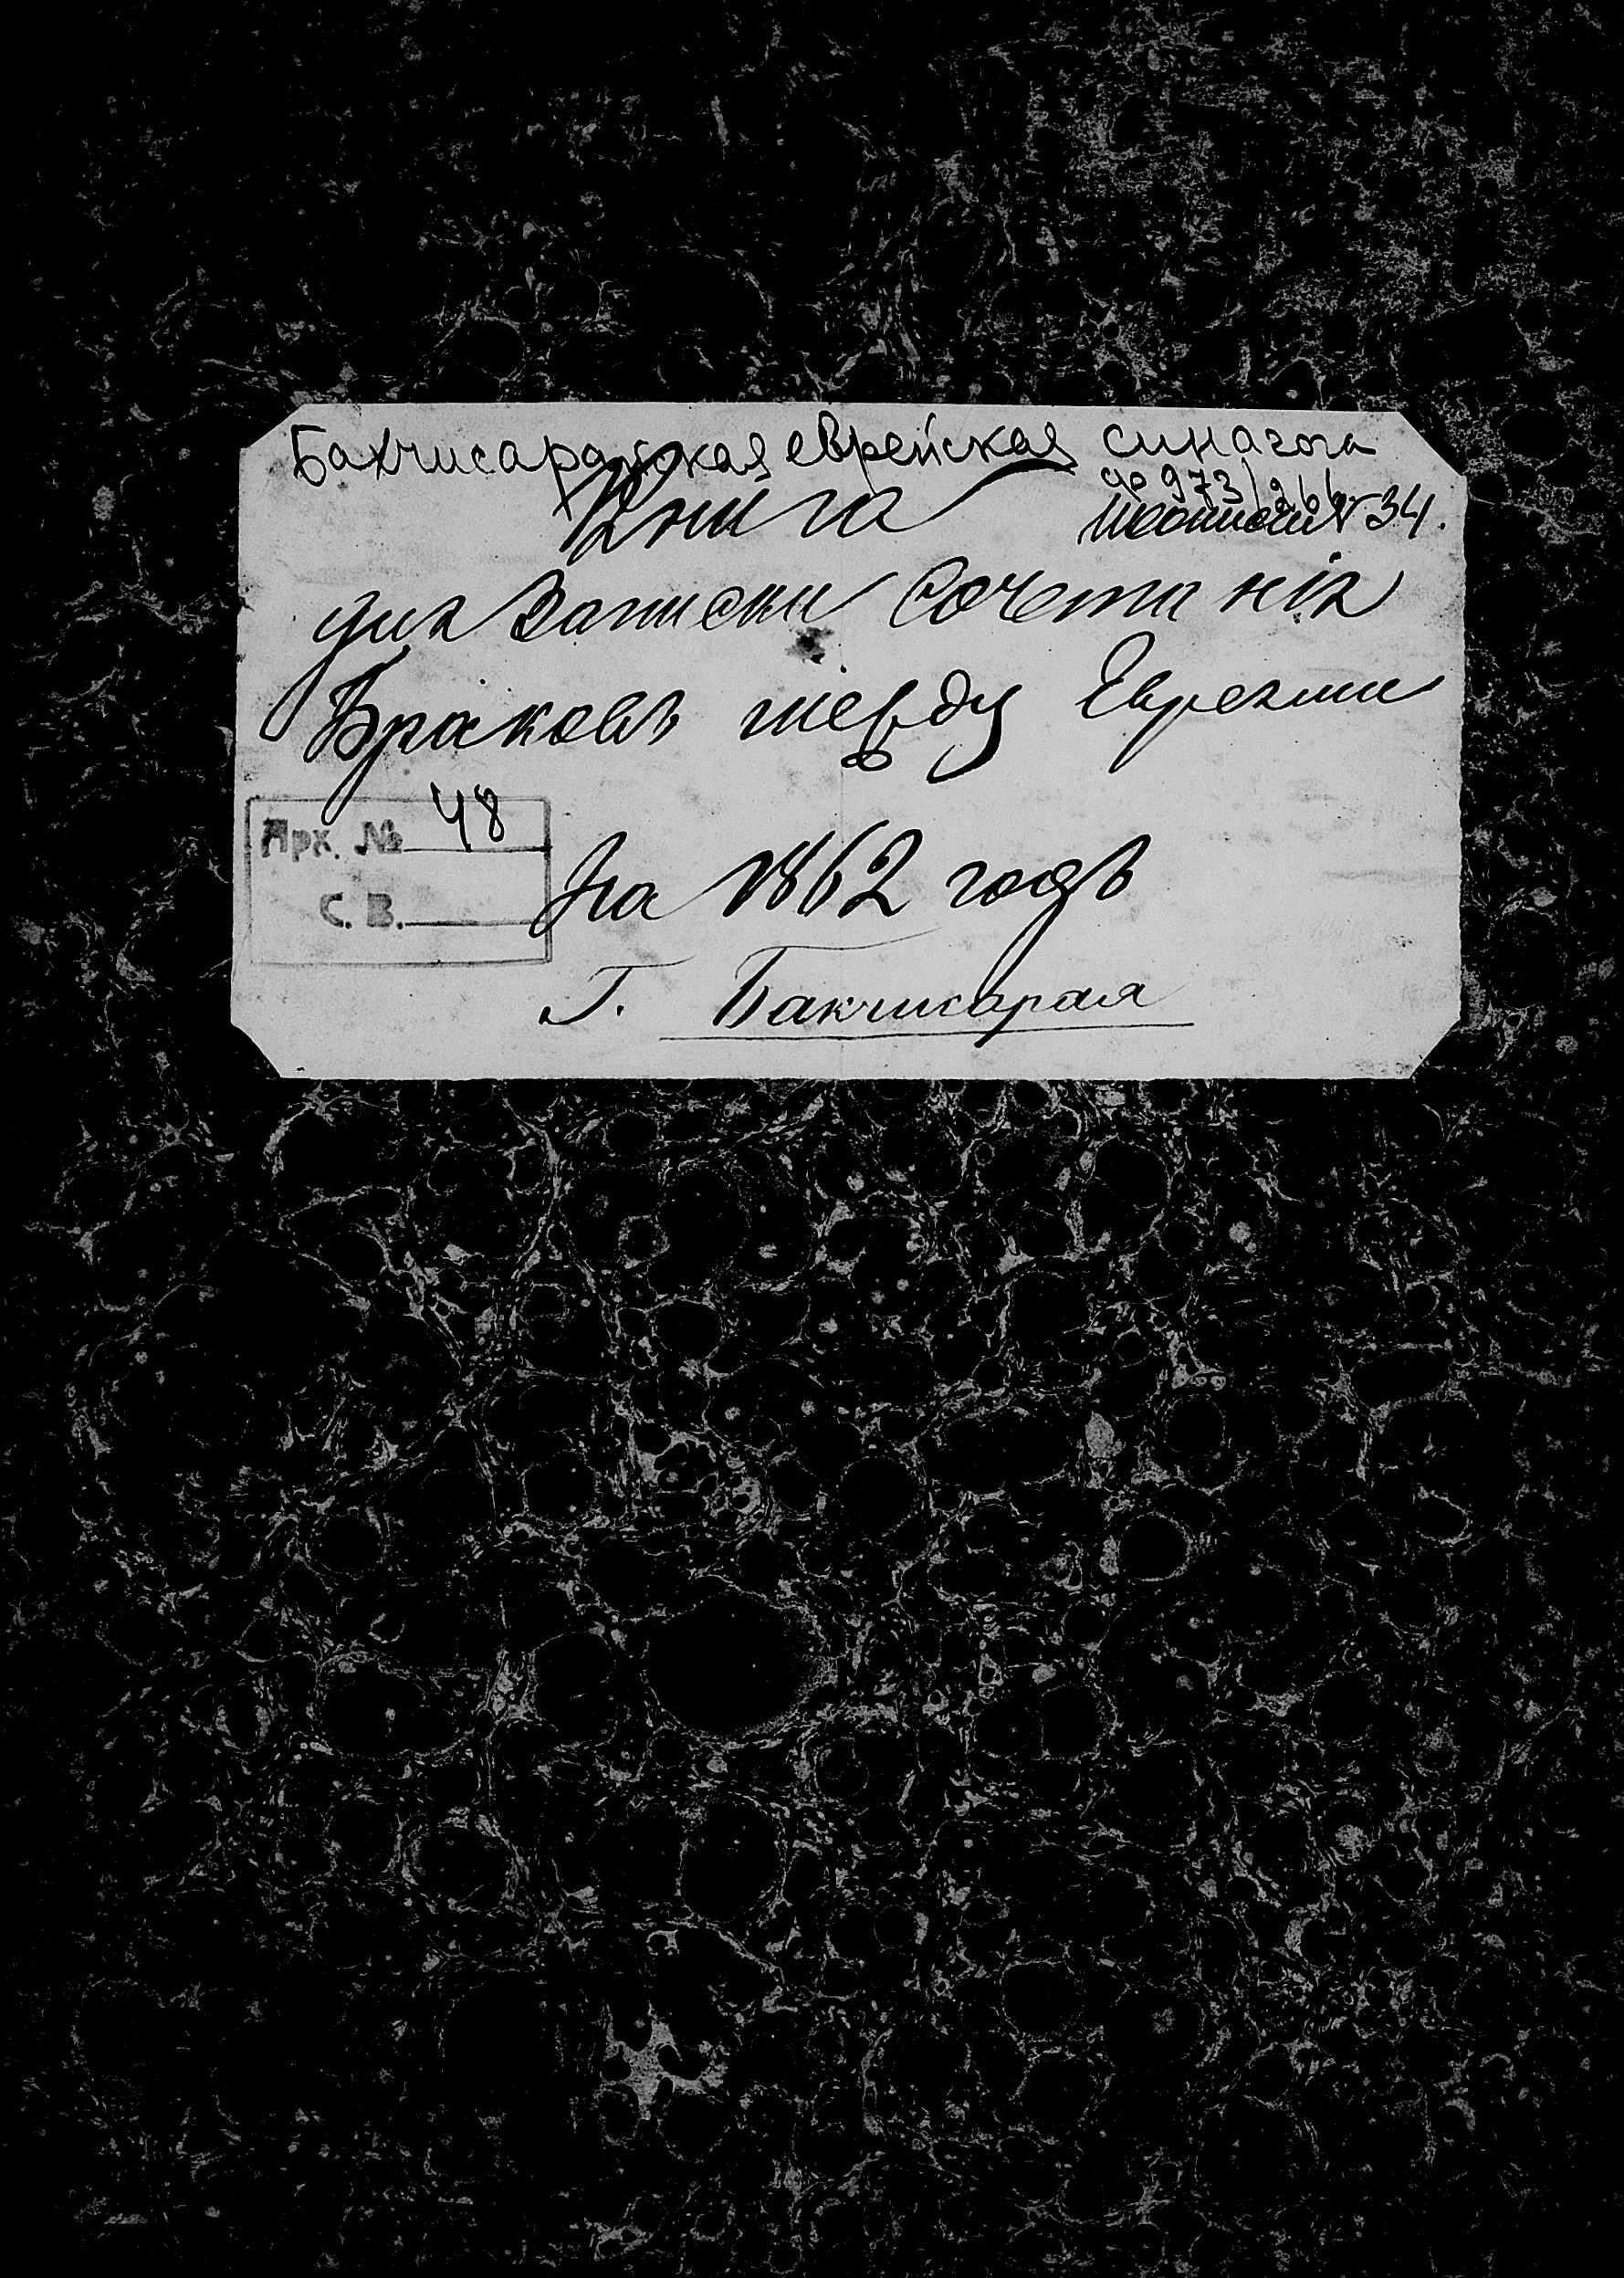 Бахчисарайская еврейская синагога
Книга
973/266
№ 34.
для записки сочетанія
Браковъ между Евреями
Арх. № 48
С. В.
На 1862 годъ
Г. Бакчисарая